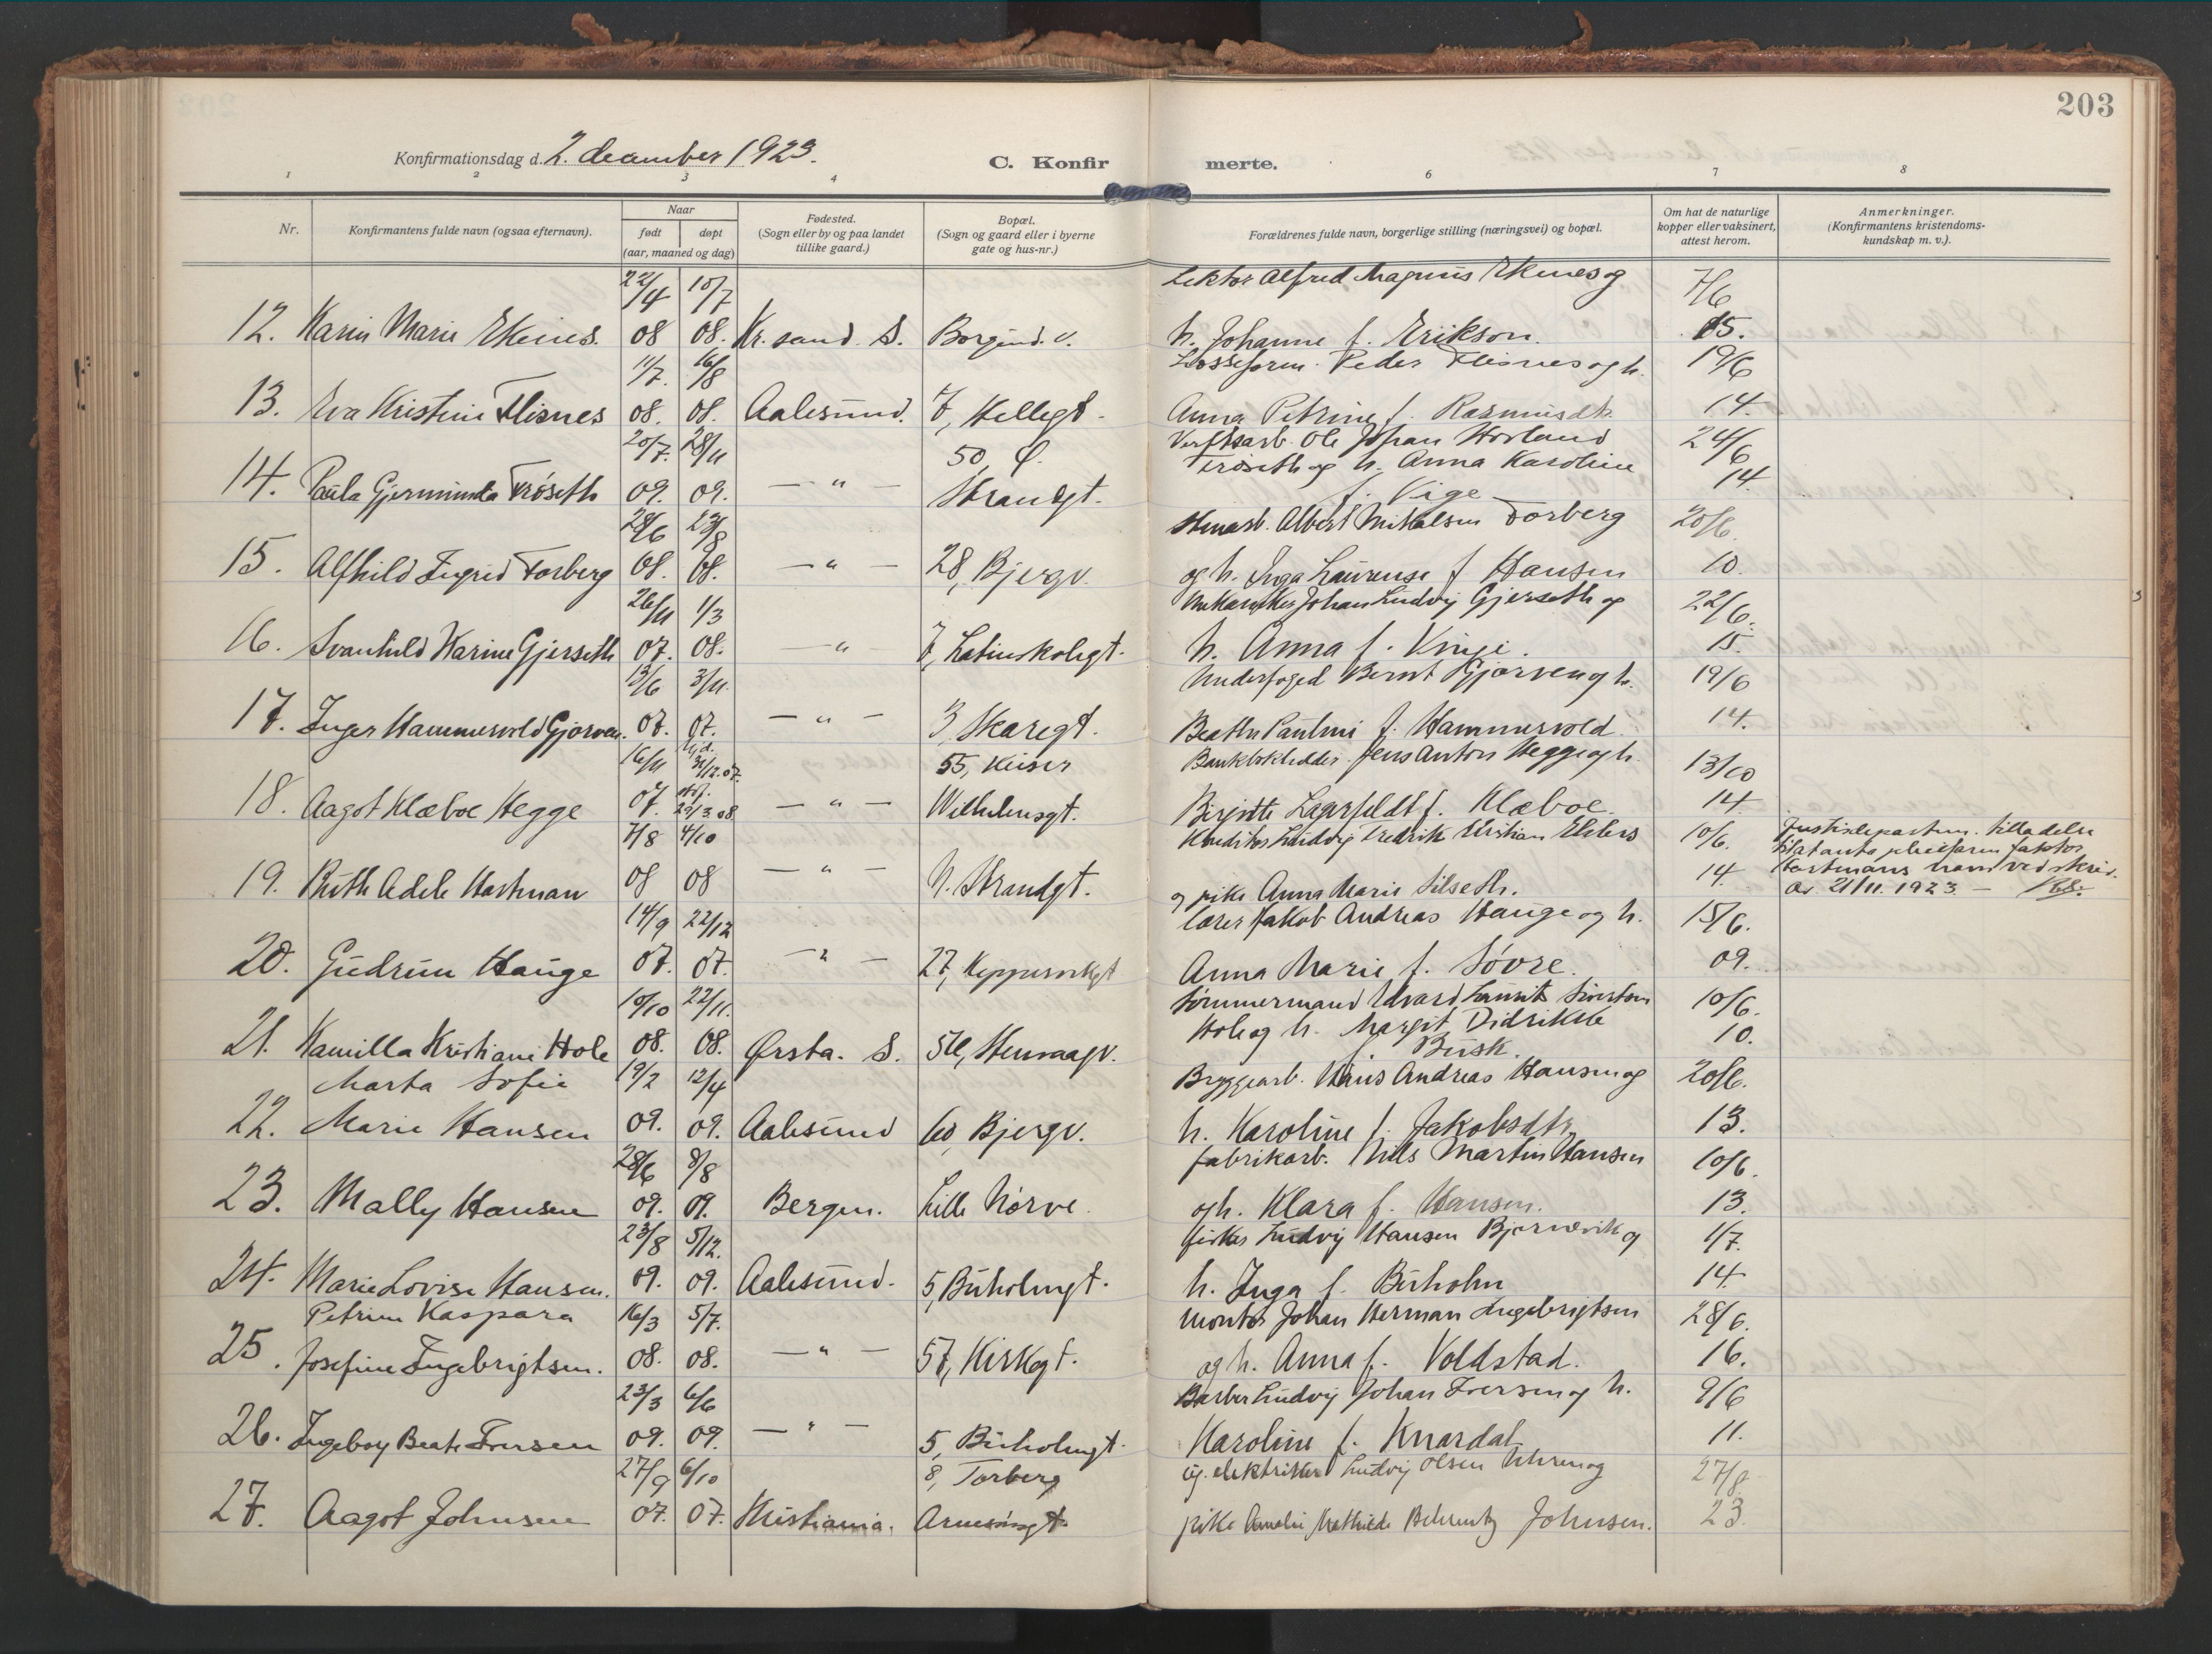 203
Konfirmationsdag d. 2. december 1923.
C. Konfirmerte.
1 2 3 4 6 7 8
Nr.
Konfirmantens fulde navn (ogsaa efternavn).
Naar
født
døpt
(aar, maaned og dag)
Fødested.
(Sogn eller by og paa landet
tillike gaard.)
Bopæl.
(Sogn og gaard eller i byerne
gate og hus-nr.)
Forældrenes fulde navn, borgerlige stilling (næringsvei) og bopæl.
Om hat de naturlige
kopper eller vaksinert,
attest herom.
Anmerkninger.
(Konfirmantens kristendoms-
kundskap m. v.).
22/4 10/7 Lektor Alfred Magnus Ekenes og 7/6
12. Karin Marie Ekenes. 08 08. Kr. sand. S. Borgund. v. h. Johanne f. Erikson. 15.
11/7. 16/8 Peder Flisnes og h. 19/6
13. Eva Kristine Flisnes 08. 08. Aalesund. 7, Hellegt. Anna Petrine f. Rasmusdtr. 14.
20/7. 28/11 50, Ø. Verftsarb. Ole Johan Hovland 24/6
14. Paula Gjerminda Frøseth 09. 09. — " — Strandgt. Frøseth og h. Anna Karoline 14
f. Vige
28/6 23/8 Stenarb. Albert Mikalsen Forberg 20/6.
15. Alfhild Ingrid Forberg 08. 08. — " — 28, Bjergv. og h. Inga Laurense f Hansen 10.
26/11 1/3 Mekaniker Johan Ludvig Gjerseth og 22/6.
16. Svanhild Karine Gjerseth 07. 08. — " 7, Latinskolegt. h. Anna f. Vinje. 15.
13/6 3/11. Underfoged Bernt Gjørven og h. 19/6
17. Inger Hammersvold Gjørven. 07. 07. — " — 3, Skaregt. Beathe Pauline f. Hammersvold. 14.
16/11 hjd. 31/12.07. 55, Keiser Bankbokholder Jens Anton Hegge og h. 13/10
18. Aagot Klæboe Hegge 07. 29/3.08 — " — Wilhelmsgt. Birgitte Lagerfeldt f. Klæboe. 14.
7/8 4/10 Konditor Ludvig Fredrik Kristian Ehlers 10/6. Justisdepartem. tilladelse
19. Ruth Adele Hartman 08 08 — " — N. Strandgt. og pike Anna Marie Silseth. 14. til at anta pleiefaren faktor
Hartmans navn ved skriv.
av 21/11. 1923. —
14/9 22/12 lærer Jakob Andreas Hauge og h. 15/6.
20. Gudrun Hauge 07. 07. — " — 27, Kippervikgt Anna Marie f. Søvre. 09.
10/10 22/11. Tømmermand Edvard Laurits Sivertsen 10/6.
21. Kamilla Kristiane Hole 08. 08. Ørsta. S. 51b, Stenvaagv. Hole og h. Margit Didrikke 10.
f. Busk.
Marta Sofie 19/2 12/4 Bryggearb. Hans Andreas Hansen og 20/6.
22. Marie Hansen 09. 09. Aalesund 60 Bjergv. h. Karoline f. Jakobsdtr. 13.
28/6 8/8 fabrikarb. Nils Martin Hansen 10/6.
23. Mally Hansen 09. 09. Bergen. Lille Nørve. og h. Klara f. Hansen. 13.
23/8 5/12. fisker Ludvig Hansen Bjørnevik og 1/7.
24. Marie Lovise Hansen. 09. 09. Aalesund. 5, Buholmgt. h. Inga f. Buholm 14.
Petrine Kaspara 16/3 5/7. Montør Johan Herman Ingebrigtsen 28/6.
25. Josefine Ingebrigtsen. 08. 08. — " — 57, Kirkegt. og h. Anna f. Voldstad. 16.
23/3 6/6 Barber Ludvig Johan Iversen og h. 9/6
26. Ingeborg Beate Iversen 09. 09. — " — 5, Buholmgt. Karoline f. Knardal 11.
27/9 6/10 8, Torberg ug. elektriker Ludvig Olsen Uhren og 27/8.
27. Aagot Johnsen 07. 07. Kristiania. Arnesøngt. pike Amalie Mathilde Behrentz Johnsen. 23.